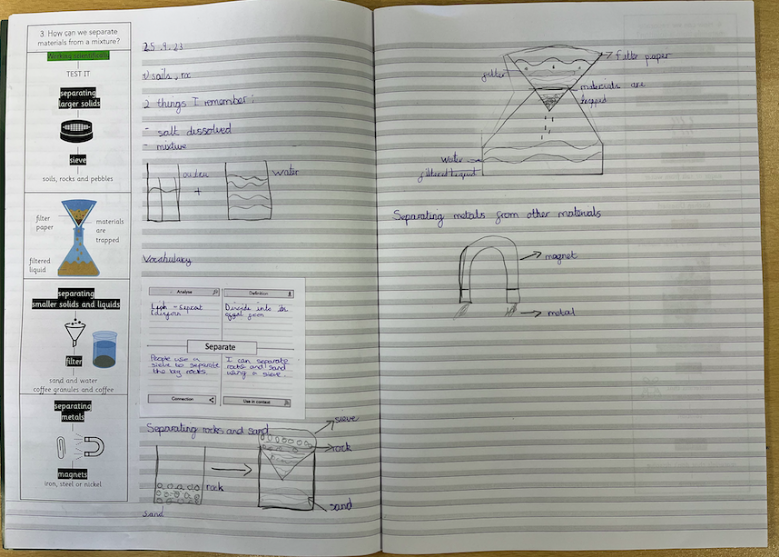 3 How can we separate
materials from a mixture?
TEST IT
separating
larger solids
sieve
soils, rocks and pebbles
filter
paper
materials
are
trapped
filtered
liquid
separating
smaller solids and liquids
filter
sand and water
coffee granules and coffee
separating
metals
magnets
iron, steel or nickel
2 things I remember:
- salt dissolved
- mixture
+
water
Vocabulary
Analyse
Definition
Divide into
Separate
People use a
sieve to separate
the big rocks.
I can separate
rocks and sand
using a sieve.
Connection
Use in context
Separating rocks and sand
sieve
rock
rock
sand
sand
filter paper
filter
materials are
trapped
water
filtered liquid
Separating metals from other materials
magnet
metal